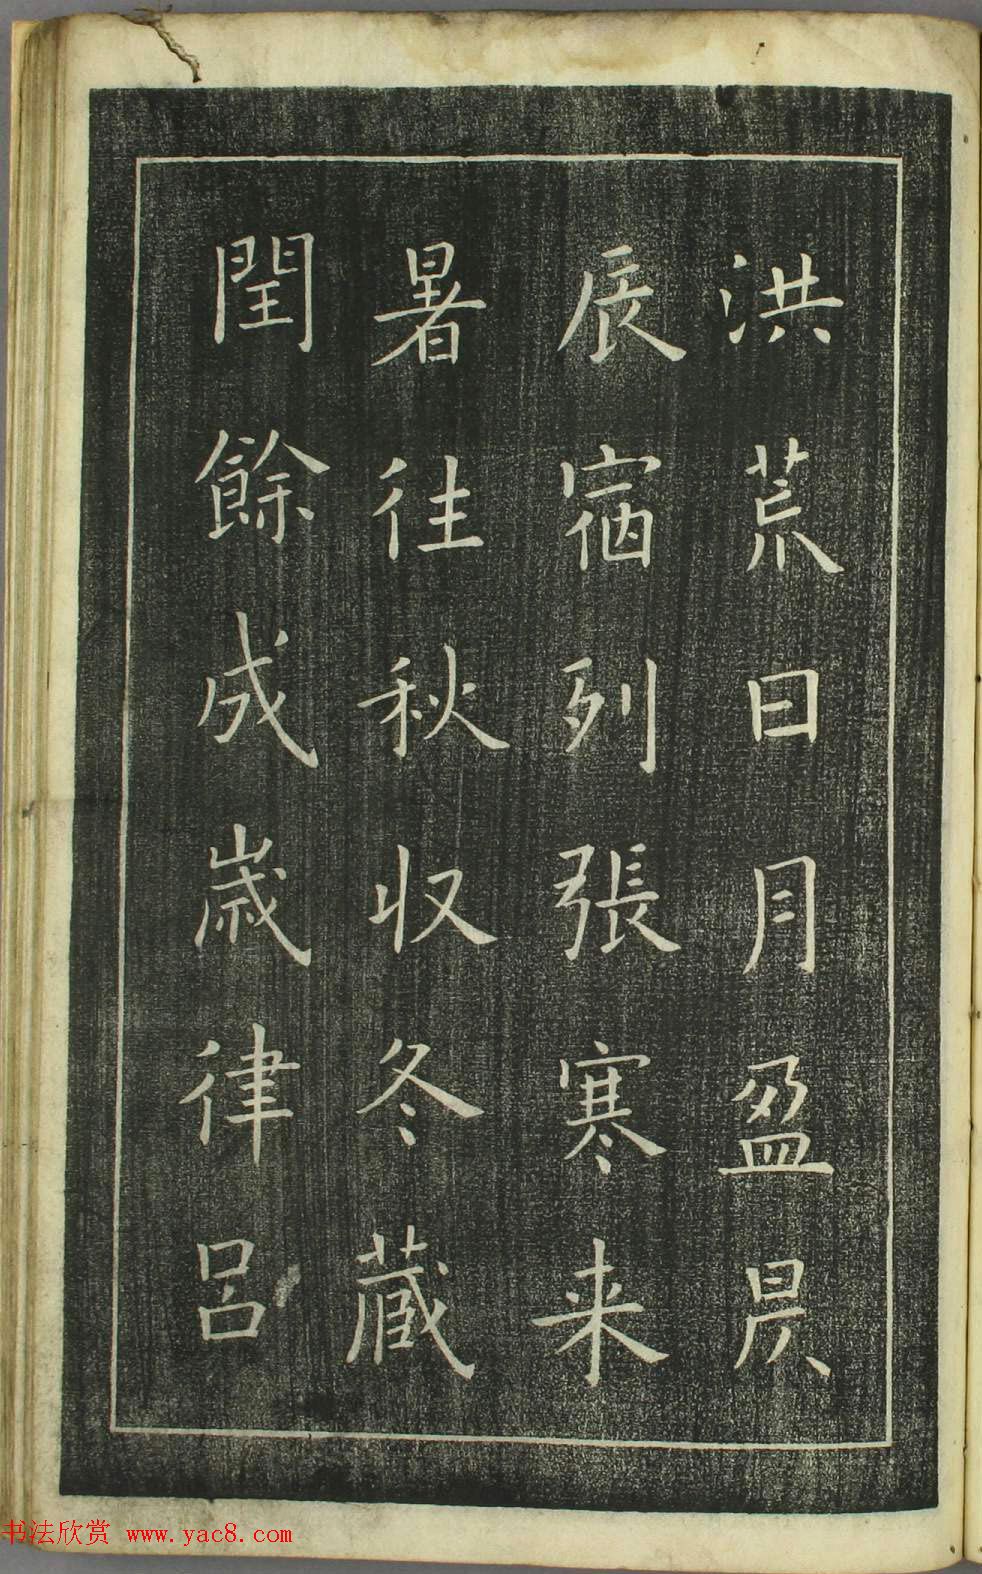 洪荒日月盈昃
辰宿列張寒来
暑往秋收冬藏
閏餘成歲律呂
书法欣赏 www.yac8.com